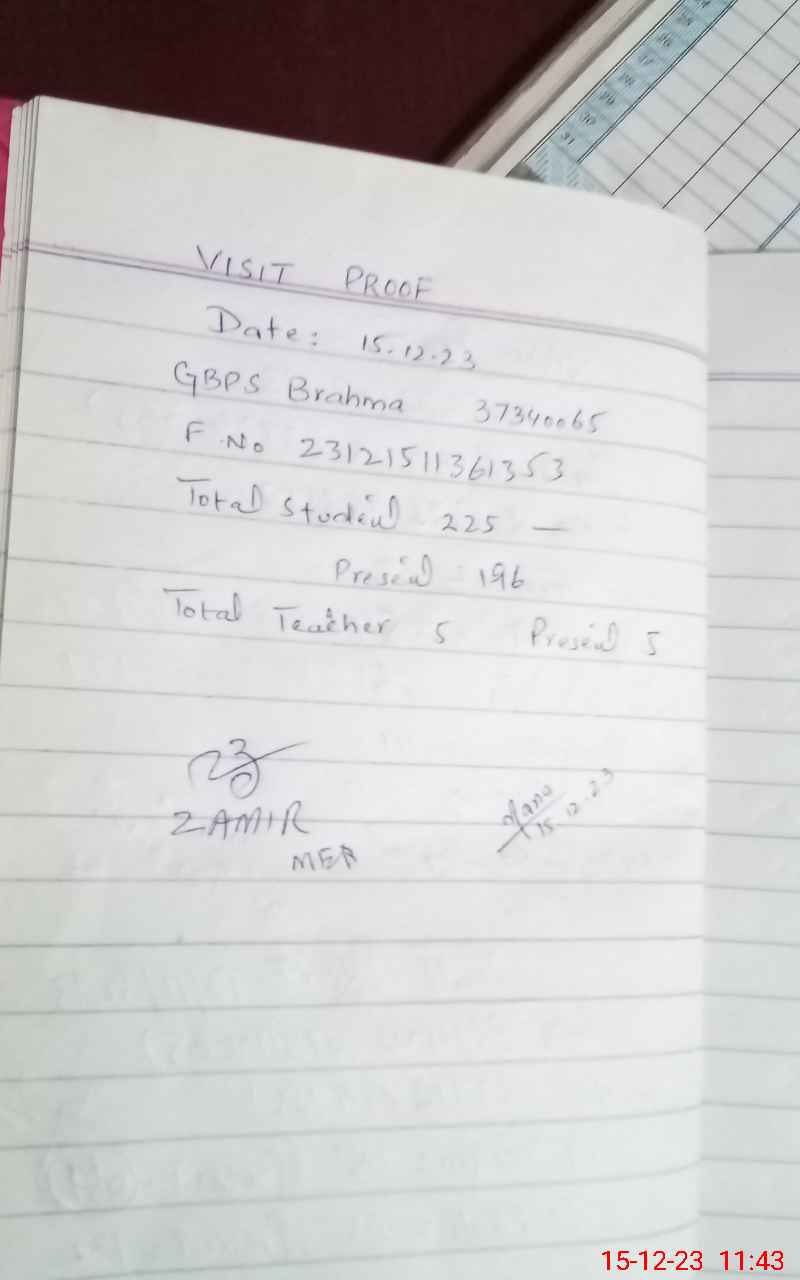 24
25
26
27
28
29
30
31
VISIT PROOF
Date: 15.12.23
GBPS Brahma 37340065
F No 23121511361353
Total Student 225 —
Present 196
Total Teacher 5 Present 5
ZAMIR
MEA
15.12.23
15-12-23 11:43